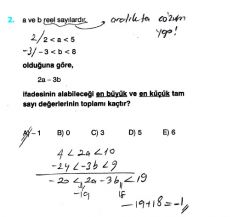 2. a ve b reel sayılardır. aralıkta çözüm
2/ 2 < a < 5 yap!
-3/ -3 < b < 8
olduğuna göre,
2a - 3b
ifadesinin alabileceği en büyük ve en küçük tam
sayı değerlerinin toplamı kaçtır?
A) -1 B) 0 C) 3 D) 5 E) 6
4 < 2a < 10
-24 < -3b < 9
-20 < 2a - 3b < 19
-19 18
-19 + 18 = -1